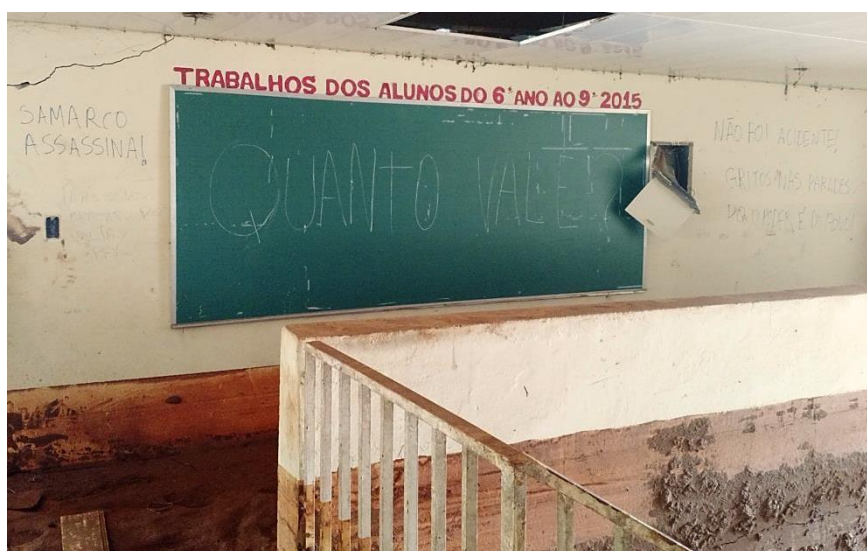 TRABALHOS DOS ALUNOS DO 6º ANO AO 9º 2015
SAMARCO
ASSASSINA!
QUANTO VALE?
NÃO FOI ACIDENTE!
GRITOS NAS PAREDES